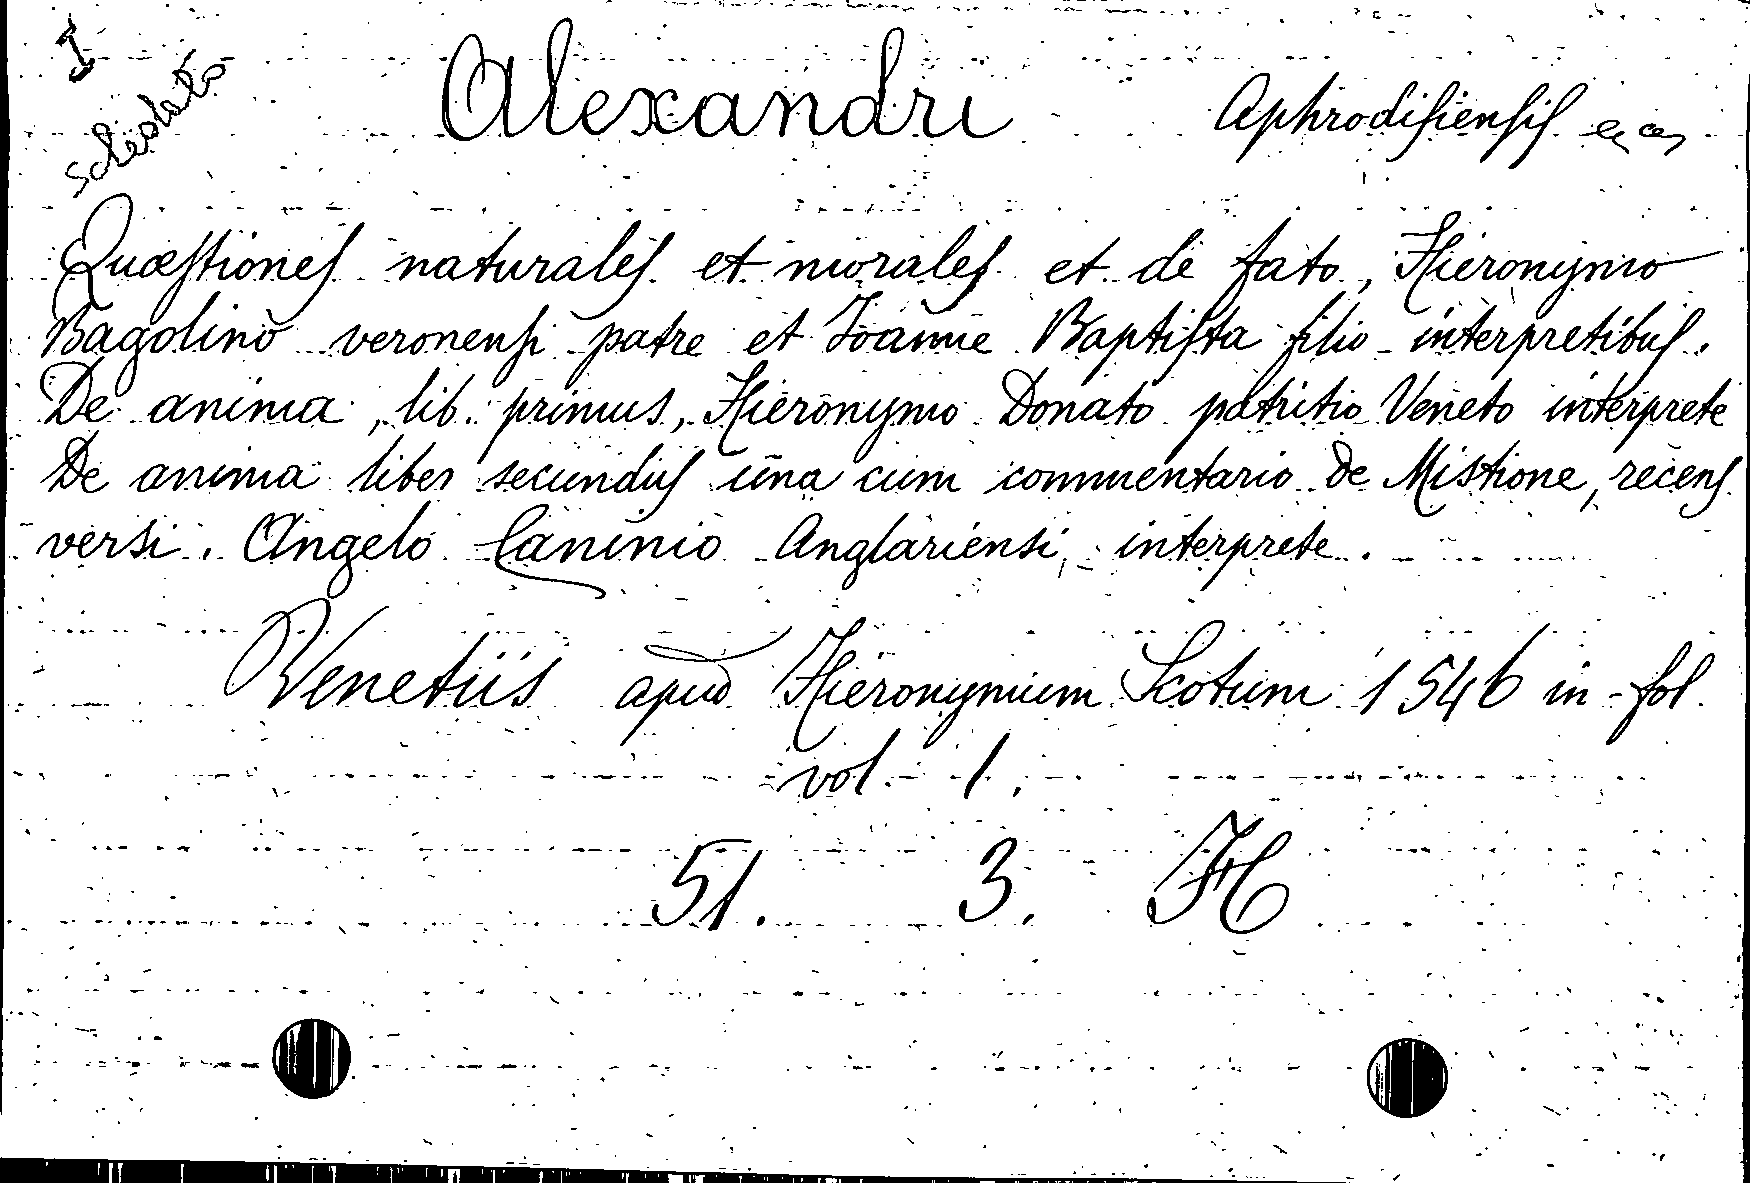 I
schedato
Alexandri Aphrodisiensis
Quæstiones naturales et morales et de fato, Hieronymo
Bagolino veronensi patre et Joanne Baptista filio interpretibus.
De anima, lib. primus, Hieronymo Donato patritio Veneto interprete
De anima liber secundus una cum commentario de Mistione, recens
versi. Angelo Caninio Anglariensi, interprete.
Venetiis apud Hieronymum Scotum 1546 in-fol.
vol. 1.
51. 3. H